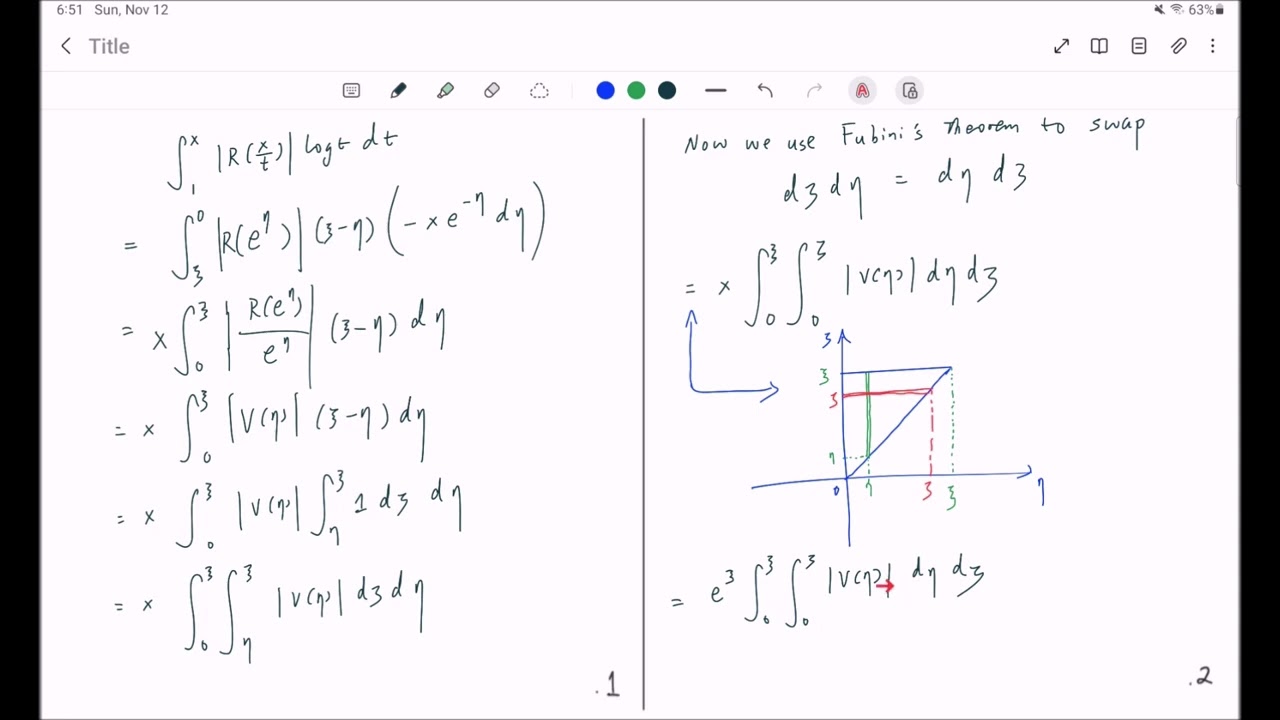 6:51 Sun, Nov 12
63%
Title
∫₁ˣ |R(x/t)| log t dt
= ∫_ξ^0 |R(e^η)| (ξ-η) (-x e^{-η} dη)
= x ∫_0^ξ |R(e^η)/e^η| (ξ-η) dη
= x ∫_0^ξ |V(η)| (ξ-η) dη
= x ∫_0^ξ |V(η)| ∫_η^ξ 1 dξ dη
= x ∫_0^ξ ∫_η^ξ |V(η)| dξ dη
.1
Now we use Fubini's Theorem to swap
dξ dη = dη dξ
= x ∫_0^ξ ∫_0^ξ |V(η)| dη dξ
ξ
ξ
ξ
η
0 η ξ ξ η
= e^ξ ∫_0^ξ ∫_0^ξ |V(η)| dη dξ
.2